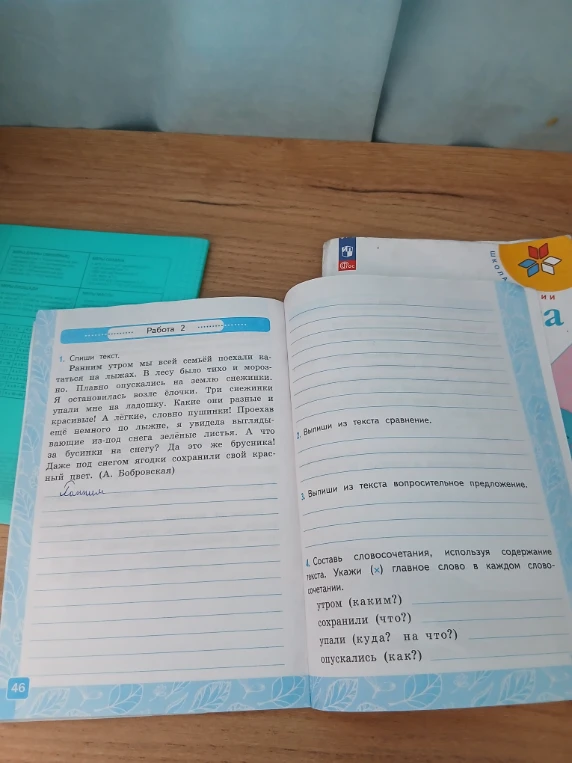 Работа 2
1. Спиши текст.
Ранним утром мы всей семьёй поехали ка-
таться на лыжах. В лесу было тихо и мороз-
но. Плавно опускались на землю снежинки.
Я остановилась возле ёлочки. Три снежинки
упали мне на ладошку. Какие они разные и
красивые! А лёгкие, словно пушинки! Проехав
ещё немного по лыжне, я увидела выгляды-
вающие из-под снега зелёные листья. А что
за бусинки на снегу? Да это же брусника!
Даже под снегом ягодки сохранили свой крас-
ный цвет. (А. Бобровская)
46
2. Выпиши из текста сравнение.
3. Выпиши из текста вопросительное предложение.
4. Составь словосочетания, используя содержание
текста. Укажи (х) главное слово в каждом слово-
сочетании.
утром (каким?)
сохранили (что?)
упали (куда? на что?)
опускались (как?)
ФГОС
ШКОЛА
ИИ
а